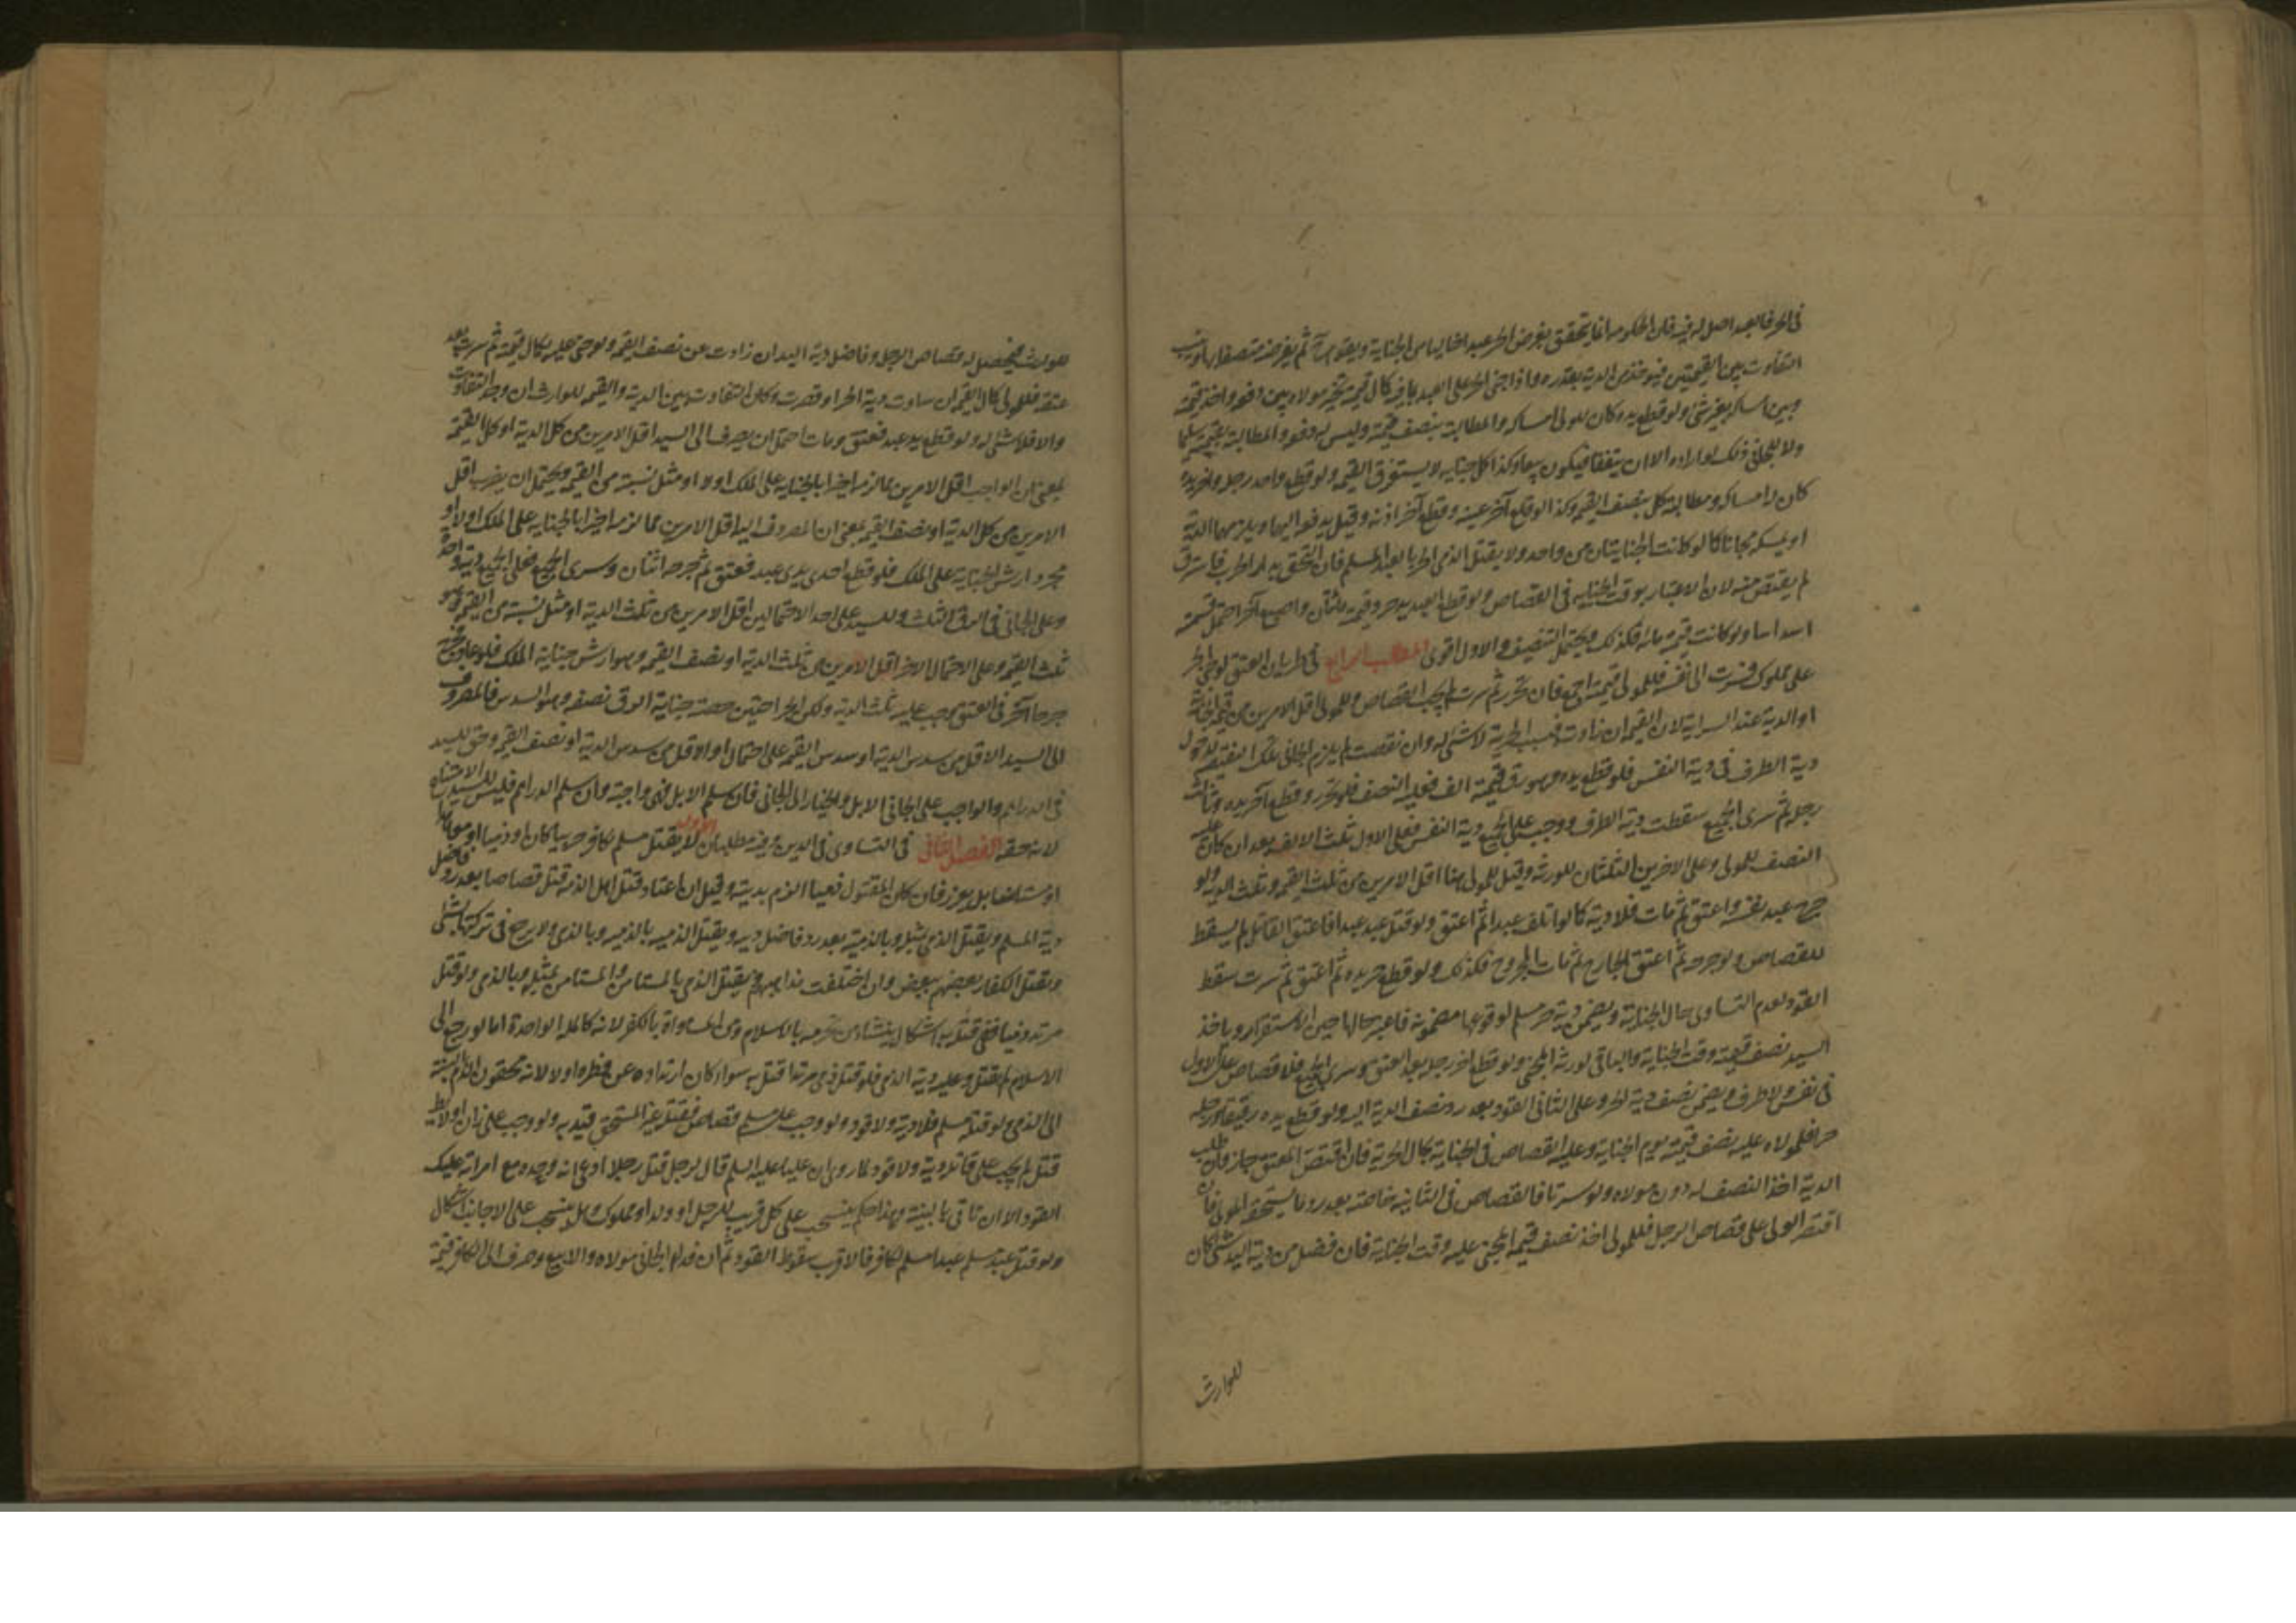 في الحر فالعبد اصل له فيه فان الحكومة انما تتحقق بفرض الحر عبدا خاليا من الجناية ويقوم ثم يفرض متصفا بها وينسب
التفاوت بين القيمتين فيؤخذ من الدية بقدره واذا جنى الحر على العبد بما فيه كمال قيمته تخير مولاه بين دفعه واخذ قيمته
وبين امساكه بغير شئ ولو قطع يده كان للمولى امساكه والمطالبة بنصف قيمته وليس له دفعه والمطالبة بقيمته سليما
ولا للجاني ذلك لو اراده الا ان يتفقا فيكون بيعا وكذا كل جناية لا يستوفى القيمة ولو قطع واحد رجله واخر يده
كان له امساكه ومطالبة كل بنصف القيمة وكذا لو قلع آخر عينه وقطع آخر اذنه وقيل يدفعه اليهما ويلزمهما الدية
او يمسكه مجانا كما لو كانت الجنايتان من واحد ولا يقتل الذمي الحر بالعبد المسلم فان التحق بدار الحرب فاسترق
لم يقتص منه لان الاعتبار بوقت الجناية في القصاص ولو قطع العبد يد حر وقيمته مائتان واصبع آخر احتمل قسمته
اسداسا ولو كانت قيمته مائة فكذلك ويحتمل التنصيف والاول اقوى المطلب الرابع في طريان العتق لو جنى الحر
على مملوك فسرت الى نفسه فللمولى قيمته اجمع فان تحرر ثم سرت لم يجب القصاص وللمولى اقل الامرين من قيمة الجناية
او الدية عند السراية لان القيمة ان زادت فبسبب الحرية لا شئ له وان نقصت لم يلزم الجاني تلك النقيصة لدخول
دية الطرف في دية النفس فلو قطع يده وهو رق قيمته الف فعليه النصف فلو تحرر وقطع آخر يده وثالث
رجله ثم سرى الجميع سقطت دية الطرف ووجب على الجميع دية النفس فعلى الاول ثلث الالف بعد ان كان عليه
النصف للمولى وعلى الاخرين الثلثان للورثة وقيل للمولى هنا اقل الامرين من ثلث القيمة وثلث الدية ولو
جرح عبد نفسه واعتق ثم مات فلا دية كما لو اتلف عبدا ثم اعتق ولو قتل عبد عبدا فاعتق القاتل لم يسقط
القصاص ولو جرحه ثم اعتق الجارح ثم مات المجروح فكذلك ولو قطع حر يده ثم اعتق ثم سرت سقط
القود لعدم التساوي حال الجناية ويضمن دية حر مسلم لوقوعها مضمونة فاعتبر حالها حين الاستقرار وياخذ
السيد نصف قيمته وقت الجناية والباقي لورثة المجني ولو قطع اخر رجله بعد العتق وسرى الجميع فلا قصاص على الاول
في نفس ولا طرف ويضمن نصف دية الحر وعلى الثاني القود بعد رد نصف الدية اليه ولو قطع يده رقيقا ورجله
حرا فلمولاه عليه نصف قيمته يوم الجناية وعليه القصاص في الجناية بحال الحرية فان اقتص المعتق جاز وان طلب
الدية اخذ النصف له دون مولاه ولو سرتا فالقصاص في الثانية خاصة بعد رد ما يستحقه المولى فان
اقتصر الولي على قصاص الرجل فللمولى اخذ نصف قيمة المجني عليه وقت الجناية فان فضل من دية اليد شئ كان
للوارث
للوارث فيحصل له قصاص الرجل وفاضل دية اليد ان زادت عن نصف القيمة ولو جنى عليه بكمال قيمته ثم سرت بعد
عتقه فللمولى كمال القيمة ان ساوت دية الحر او قصرت وكان التفاوت بين الدية والقيمة للوارث ان وجد التفاوت
والا فلا شئ له ولو قطع يد عبد فعتق ومات احتمل ان يصرف الى السيد اقل الامرين من كل الدية او كل القيمة
بمعنى ان الواجب اقل الامرين مما لزمه اخيرا بالجناية على الملك اولا او مثل نسبته من القيمة ويحتمل ان يضرب اقل
الامرين من كل الدية او نصف القيمة بمعنى ان المصروف اليه اقل الامرين مما لزمه اخيرا بالجناية على الملك اولا او
مجرد ارش الجناية على الملك فلو قطع احدى يدي عبد فعتق ثم جرحه اثنان وسرى الجميع فعلى الجميع دية واحدة
وعلى الجاني في الرق الثلث وللسيد على احد الاحتمالين اقل الامرين من ثلث الدية او مثل نسبته من القيمة وهو
ثلث القيمة وعلى الاحتمال الاخر اقل الامرين من ثلث الدية او نصف القيمة وهو ارش جناية الملك فلو عاد وجرحه
جرحا آخر في العتق وجب عليه ثلث الدية ولكن بجراحتين حصة جناية الرق نصفه وهو السدس فالمصروف
الى السيد الاقل من سدس الدية او سدس القيمة على احتمال او الاقل من سدس الدية او نصف القيمة وحق للسيد
في الدراهم والواجب على الجاني الابل والخيار الى الجاني فان سلم الابل فهي واجبة وان سلم الدراهم فليس للسيد الامتناع
لانه حقه الفصل الثاني في التساوي في الدين وفيه مطلبان الاول لا يقتل مسلم بكافر حربيا كان او ذميا او معاهدا
او مستامنا بل يعزر فان كان المقتول ذميا الزم بديته وقيل ان اعتاد قتل اهل الذمة قتل قصاصا بعد رد فاضل
دية المسلم ويقتل الذمي بمثله وبالذمية بعد رد فاضل ديته ويقتل الذمية بالذمية وبالذمي ولا يرجع في تركتها بشئ
ويقتل الكفار بعضهم ببعض وان اختلفت مذاهبهم فيقتل الذمي بالمستامن والمستامن بمثله وبالذمي ولو قتل
مرتد ذميا ففي قتله به اشكال ينشأ من تحرمه بالاسلام ومن المساواة بالكفر لانه كالملة الواحدة اما لو رجع الى
الاسلام لم يقتل وعليه دية الذمي فلو قتل ذمي مرتدا قتل به سواء كان ارتداده عن فطرة او لا لانه محقون الدم بالنسبة
الى الذمي ولو قتله مسلم فلا دية ولا قود ولو وجب على مسلم قصاص فقتله غير المستحق قيد به ولو وجب على زان او لائط
قتل لم يجب على قاتله دية ولا قود لما روي ان عليا عليه السلم قال لرجل قتل رجلا ادعى انه وجده مع امراته عليك
القود الا ان تاتي بالبينة وهذا حكم ينسحب على كل قريب للرجل او ولد او مملوك وهل ينسحب على الاجانب اشكال
ولو قتل عبد مسلم عبدا مسلما لكافر فالاقرب سقوط القود ثم ان فداه الجاني مولاه والا بيع وصرف الى الكافر قيمة